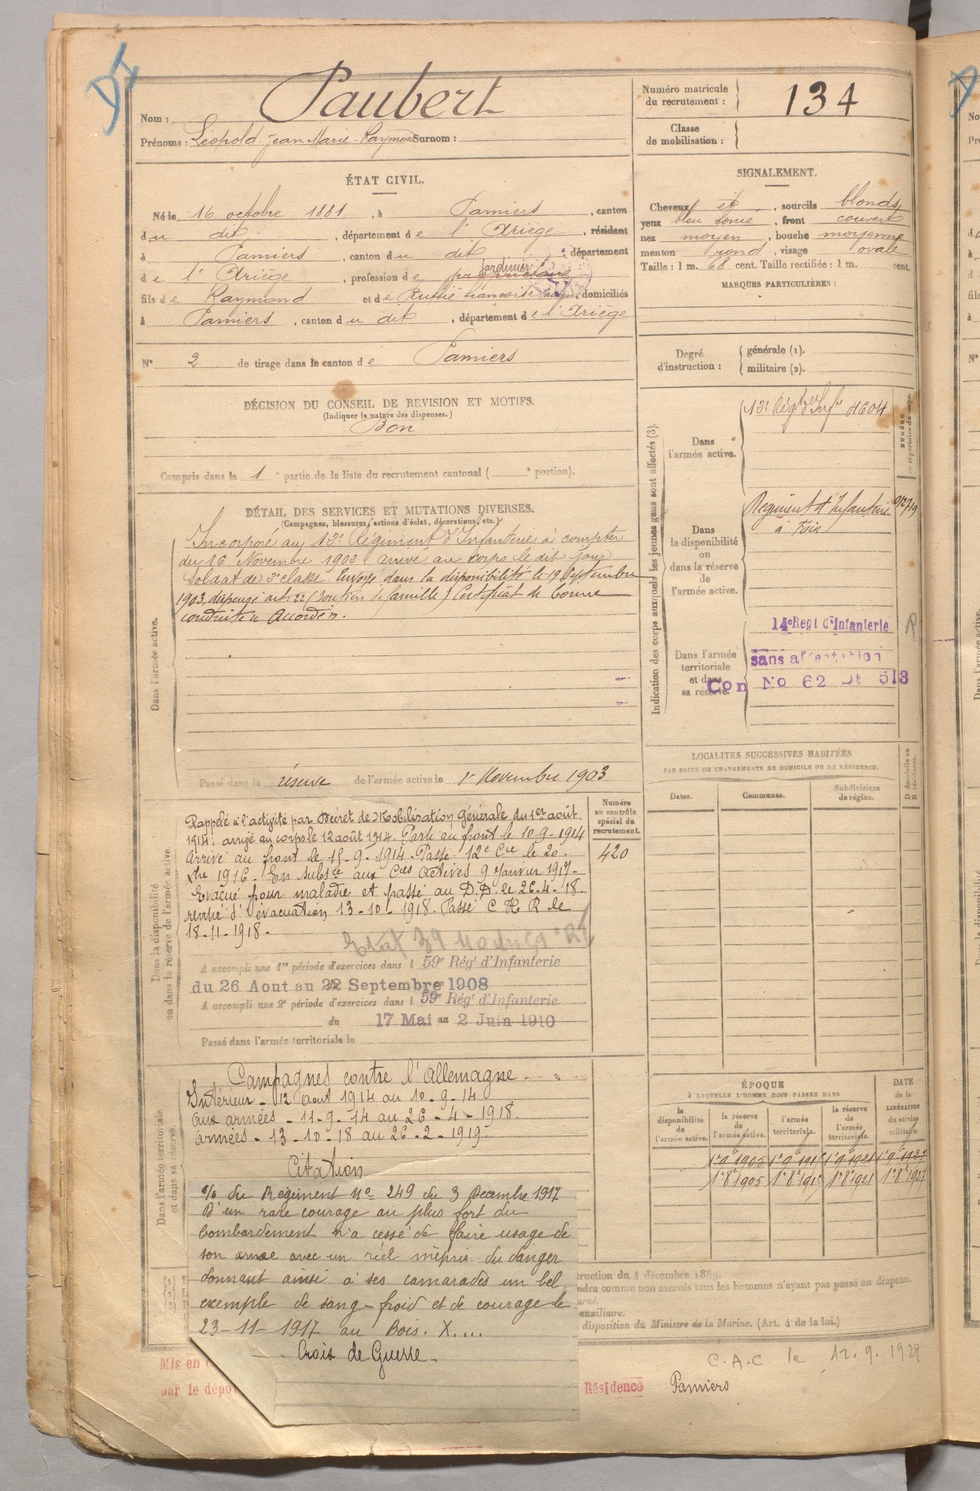 Nom : Paubert
Prénoms : Léopold Jean Marie Raymond Surnom :
Numéro matricule
du recrutement : 134
Classe
de mobilisation :
ÉTAT CIVIL.
Né le 16 octobre 1881, à Pamiers, canton
du dit, département de l'Ariège, résidant
à Pamiers, canton du dit, département
Jardinier
de l'Ariège, profession de
fils de Raymond et de Rutié françoise, domiciliés
à Pamiers, canton du dit, département de l'Ariège
N° 2 de tirage dans le canton de Pamiers
SIGNALEMENT.
Cheveux et, sourcils blonds,
yeux bleu foncé, front couvert
nez moyen, bouche moyenne
menton rond, visage ovale
Taille : 1 m. 68 cent. Taille rectifiée : 1 m. cent.
MARQUES PARTICULIÈRES :
Degré
d'instruction :
générale (1).
militaire (2).
DÉCISION DU CONSEIL DE REVISION ET MOTIFS.
(Indiquer la nature des dispenses.)
Bon
Compris dans la 1 partie de la liste du recrutement cantonal ( portion).
DÉTAIL DES SERVICES ET MUTATIONS DIVERSES.
(Campagnes, blessures, actions d'éclat, décorations, etc.)
Dans l'armée active.
Incorporé au 13e Régiment d'Infanterie à compter
du 16 Novembre 1902 arrivé au corps le dit jour
soldat de 2e classe. Envoyé dans la disponibilité le 19 Septembre
1903, dispensé art. 22 (Soutien de famille) Certificat de bonne
conduite Accordé.
Passé dans la réserve de l'armée active le 1er Novembre 1903
Indication des corps auxquels les jeunes gens sont affectés (3).
Dans
l'armée active.
13e Rég d'Infie
Dans
la disponibilité
ou
dans la réserve
de
l'armée active.
Régiment d'Infanterie
à Foix
Dans l'armée
territoriale
et dans
sa réserve.
14e Regt d'Infanterie
sans affectation
Con No 62 Dt 513
LOCALITÉS SUCCESSIVES HABITÉES
PAR SUITE DE CHANGEMENTS DE DOMICILE OU DE RÉSIDENCE.
Dates.
Communes.
Subdivisions
de région.
Dans la disponibilité
ou dans la réserve de l'armée active.
Numéro
au contrôle
spécial du
recrutement.
420
Rappelé à l'activité par Décret de Mobilisation Générale du 1er août
1914; arrivé au corps le 12 août 1914. Parti au front le 10-9-1914
Arrivé au front le 15-9-1914. Passé 12e Cie le 20.
Xbre 1916. En subsce aux Cies actives 9 Janvier 1917.
Evacué pour maladie et passé au D.D. le 26.4.18.
rentré d'évacuation 13-10-1918. Passé C H R le
18-11-1918.
A accompli une 1re période d'exercices dans l 59e Rég d'Infanterie
du 26 Aout au 22 Septembre 1908
A accompli une 2e période d'exercices dans l 59e Rég d'Infanterie
du 17 Mai au 2 Juin 1910
Passé dans l'armée territoriale le
Dans l'armée territoriale
et dans sa réserve.
Campagnes contre l'Allemagne
Intérieur - 12 août 1914 au 10-9-14
aux armées - 11-9-14 au 26-4-1918.
armées - 13-10-18 au 26-2-1919.
Citation
O/ du Régiment No 249 du 3 Décembre 1917
D'un rare courage au plus fort du
bombardement n'a cessé de faire usage de
son arme avec un réel mépris du danger
donnant ainsi à ses camarades un bel
exemple de sang-froid et de courage le
23-11-1917 au Bois. X....
Croix de Guerre.
ÉPOQUE
À LAQUELLE L'HOMME DOIT PASSER DANS
DATE
de la
LIBÉRATION
du service
militaire.
la
disponibilité
de
l'armée active.
la réserve
de
l'armée active.
l'armée
territoriale.
la réserve
de
l'armée
territoriale.
ruction du 4 décembre 1889.
ndra comme non exercés tous les hommes n'ayant pas passé au drapeau.
auxiliaire.
disposition du Ministre de la Marine. (Art. 4 de la loi.)
C.A.C le 12.9.1929
Mis en
par le dépô
Résidence Pamiers